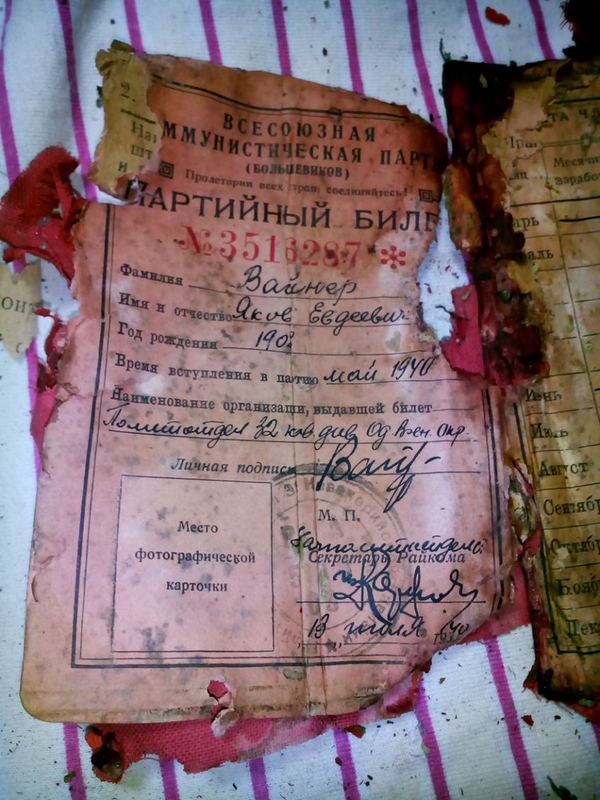 2.
ВСЕСОЮЗНАЯ
ММУНИСТИЧЕСКАЯ ПАРТ
(БОЛЬШЕВИКОВ)
Пролетарии всех стран соединяйтесь!
ПАРТИЙНЫЙ БИЛЕ
№ 3516287 *
Фамилия Вайнер
Имя и отчество Яков Евдеевич
Год рождения 190
Время вступления в партию май 1940
Наименование организации, выдавшей билет
Политотдел 32 кав див Од Воен. Окр.
Личная подпись
Место
фотографической
карточки
М. П.
Секретарь Райкома
13 июля 1940
Месячн
заработ
Июнь
Июль
Август
Сентябр
Октябр
Ноябр
Дек